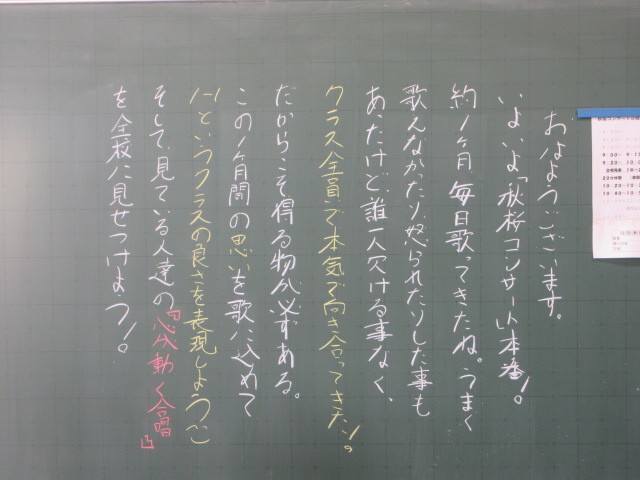 おはようございます。
いよいよ「秋桜コンサート」本番!。
約1ヶ月毎日歌ってきたね。うまく
歌えなかったり、怒られたりした事も
あったけど、誰一人欠ける事なく、
クラス全員で本気で向き合ってきた。
だからこそ得る物が必ずある。
この1ヶ月間の思いを歌に込めて
1-1というクラスの良さを表現しよう
そして、見ている人達の『心が動く合唱』
を全校に見せつけよう!。
9:00~9:
9:20~10:
20分休憩
10:20~10
10:40~10